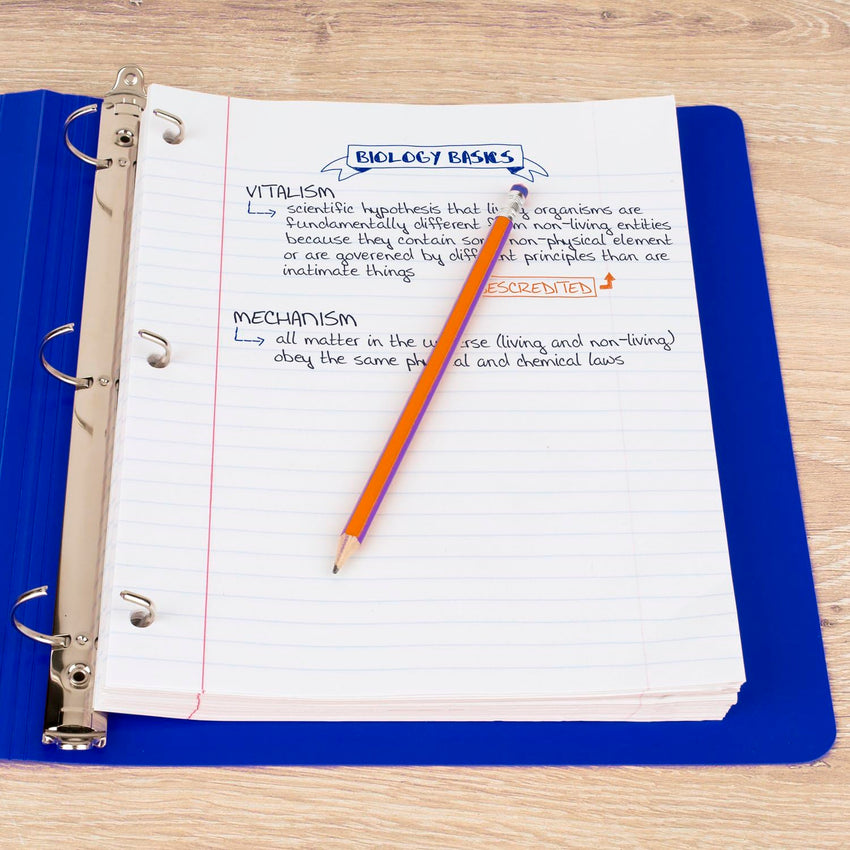 BIOLOGY BASICS
VITALISM
scientific hypothesis that living organisms are
fundamentally different from non-living entities
because they contain some non-physical element
or are goverened by different principles than are
inatimate things
DESCREDITED
MECHANISM
all matter in the universe (living and non-living)
obey the same physical and chemical laws